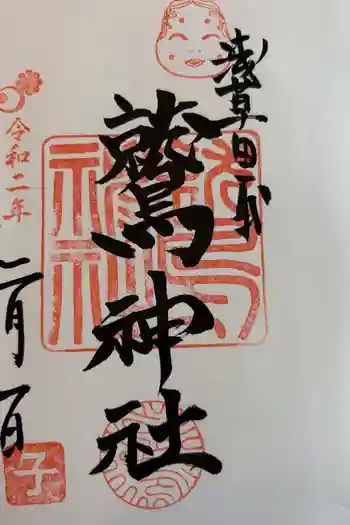 浅草田甫
鷲神社
令和二年
二月一日
子